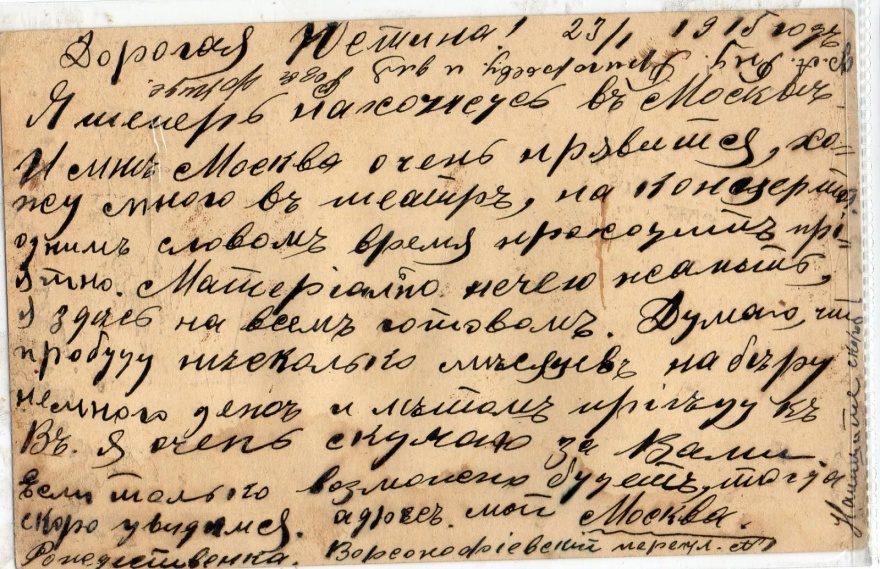 Дорогая Устина! 23/1 1915 годъ
Я теперь нахожусь въ Москвѣ.
И мнѣ Москва очень нравится, хо=
жу много въ театръ, на концерты.
однимъ словомъ время проходитъ прі=
ятно. Матеріално нечего жалѣть,
я здѣсь на всемъ готовомъ. Думаю, что
пробуду нѣсколько мѣсяцевъ наберу
немного денегъ и лѣтомъ пріѣду къ
Въ. я очень скучаю за Вами
Если только возможно будетъ, тогда
скоро увидимся. адресъ мой Москва.
Рождественка. Варсонофіевскій переул.
Напишите скоро!